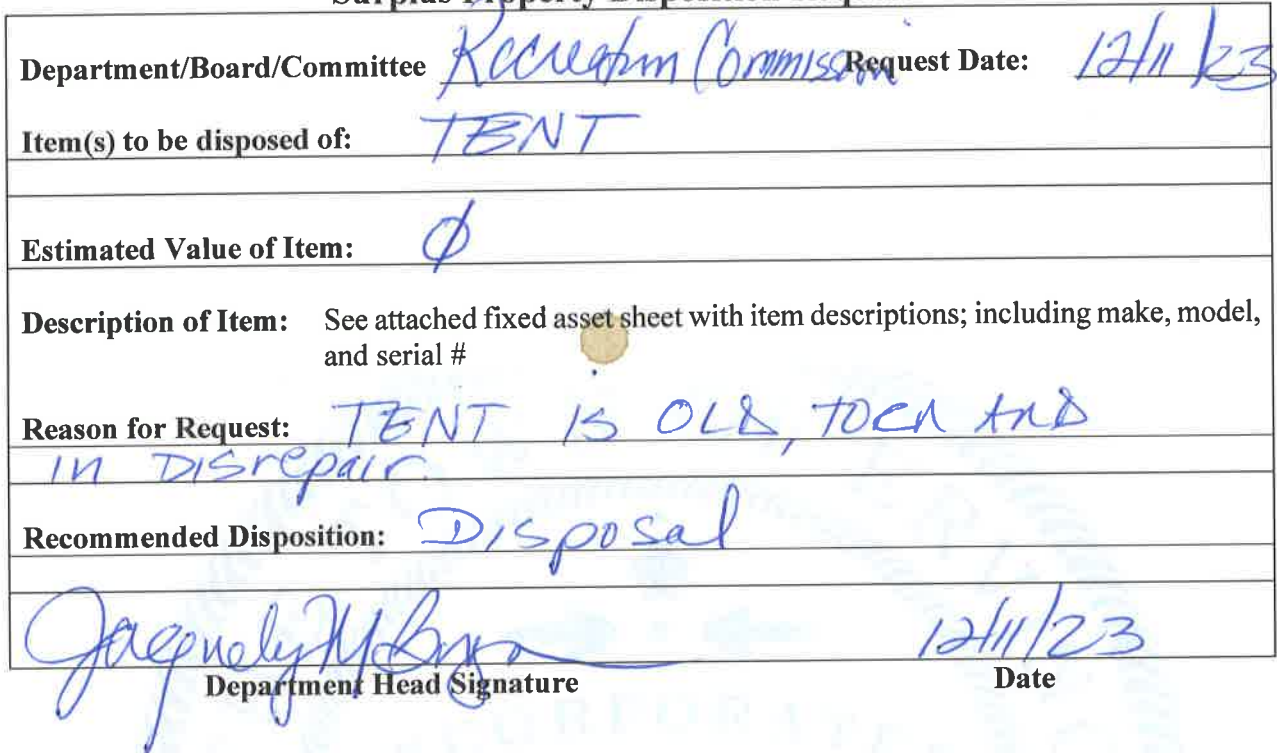 Surplus Property Disposition
Department/Board/Committee Recreation Commission Request Date: 12/11/23
Item(s) to be disposed of: TENT
Estimated Value of Item: Ø
Description of Item: See attached fixed asset sheet with item descriptions; including make, model,
and serial #
Reason for Request: TENT IS OLD, TORN AND
IN DISrepair.
Recommended Disposition: DISposal
12/11/23
Department Head Signature Date